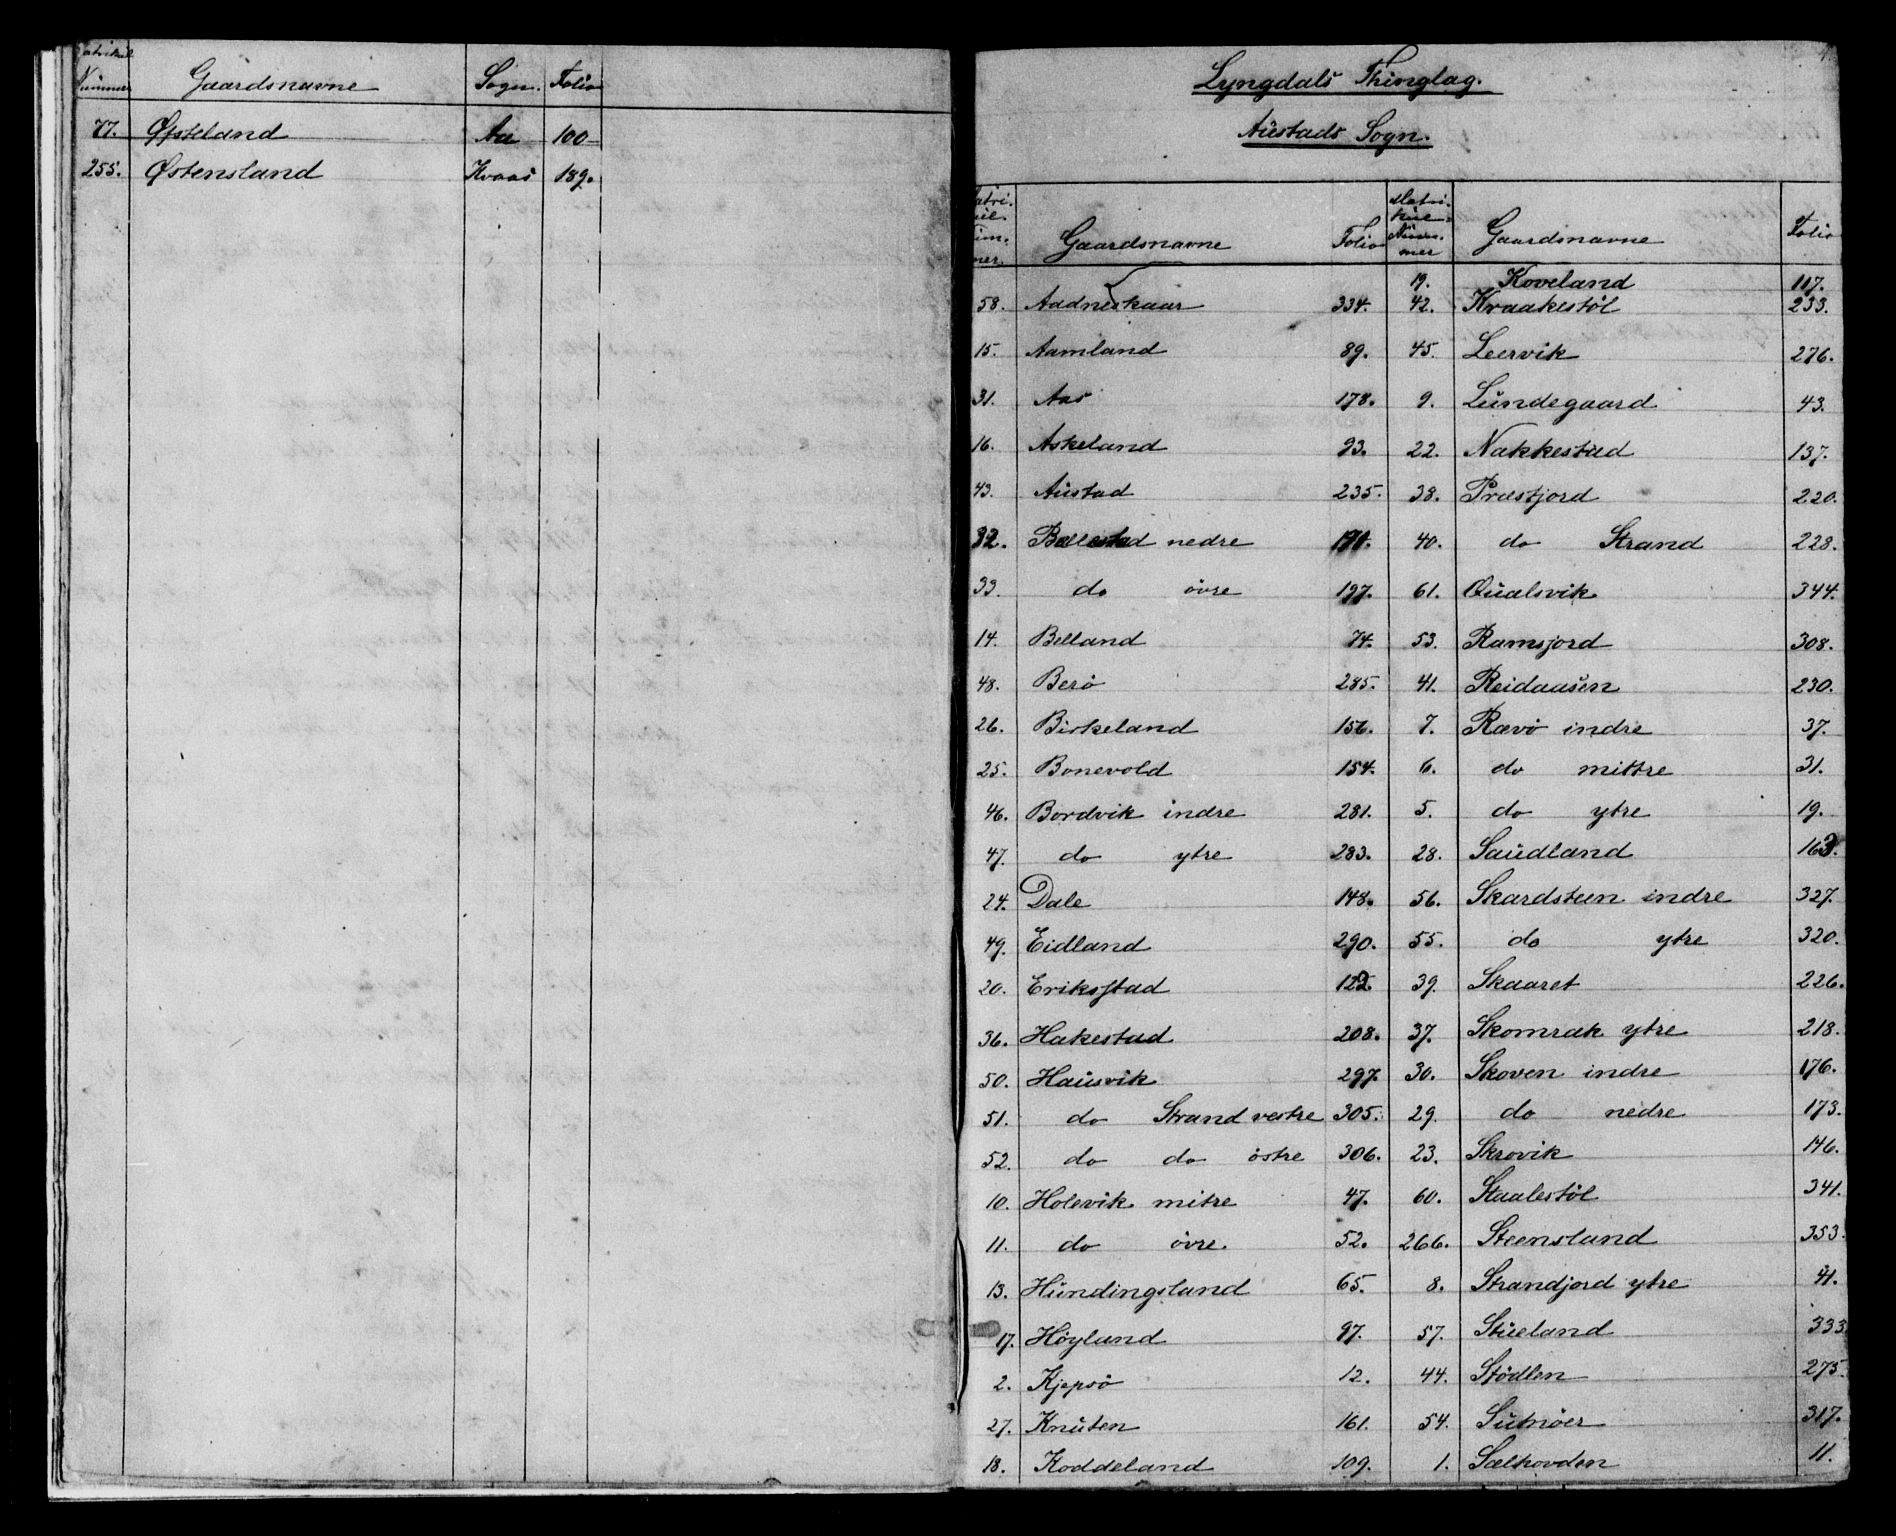 Nummer Gaardsnavne Sogn. Folio
77. Øfsteland Aa 100
255. Østensland Kvaas 189.
4
Lyngdals Thinglag.
Austads Sogn.
Gaardsnavne Folio Matrikul-Nummer Gaardsnavne Folio
19. Koveland 117.
58. Aadneskaar 334. 42. Kraakestöl 233.
15. Aamland 89. 45. Leervik 276.
31. Aas 178. 9. Lundegaard 43.
16. Askeland 93. 22. Nakkestad 137.
43. Austad 235. 38. Præstjord 220.
32. Bællestad nedre 40. do Strand 228.
33. do övre 197. 61. Qualsvik 344.
14. Belland 74. 53. Ramsjord 308.
48. Berö 285. 41. Reidaasen 230.
26. Birkeland 156. 7. Rævö indre 37.
25. Bonevold 154. 6. do mittre 31.
46. Bordvik indre 281. 5. do ytre 19.
47. do ytre 283. 28. Saudland 163.
24. Dale 148. 56. Skardsteen indre 327.
49. Eidland 290. 55. do ytre 320.
20. Eriksstad 122. 39. Skaaret 226.
36. Hakestad 208. 37. Skomrak ytre 218.
50. Hausvik 297. 30. Skoven indre 176.
51. do Strand vestre 305. 29. do nedre 173.
52. do do östre 306. 23. Skrovik 146.
10. Holevik mitre 47. 60. Staalestöl 341.
11. do övre. 52. 266. Steensland 353.
13. Hundingsland 65. 8. Strandjord ytre 41.
17. Höyland 97. 57. Stueland 333
2. Kjepsö 12. 44. Stödlen 275.
27. Knuten 161. 54. 317.
18. Koddeland 109. 1. Sælhovden 11.